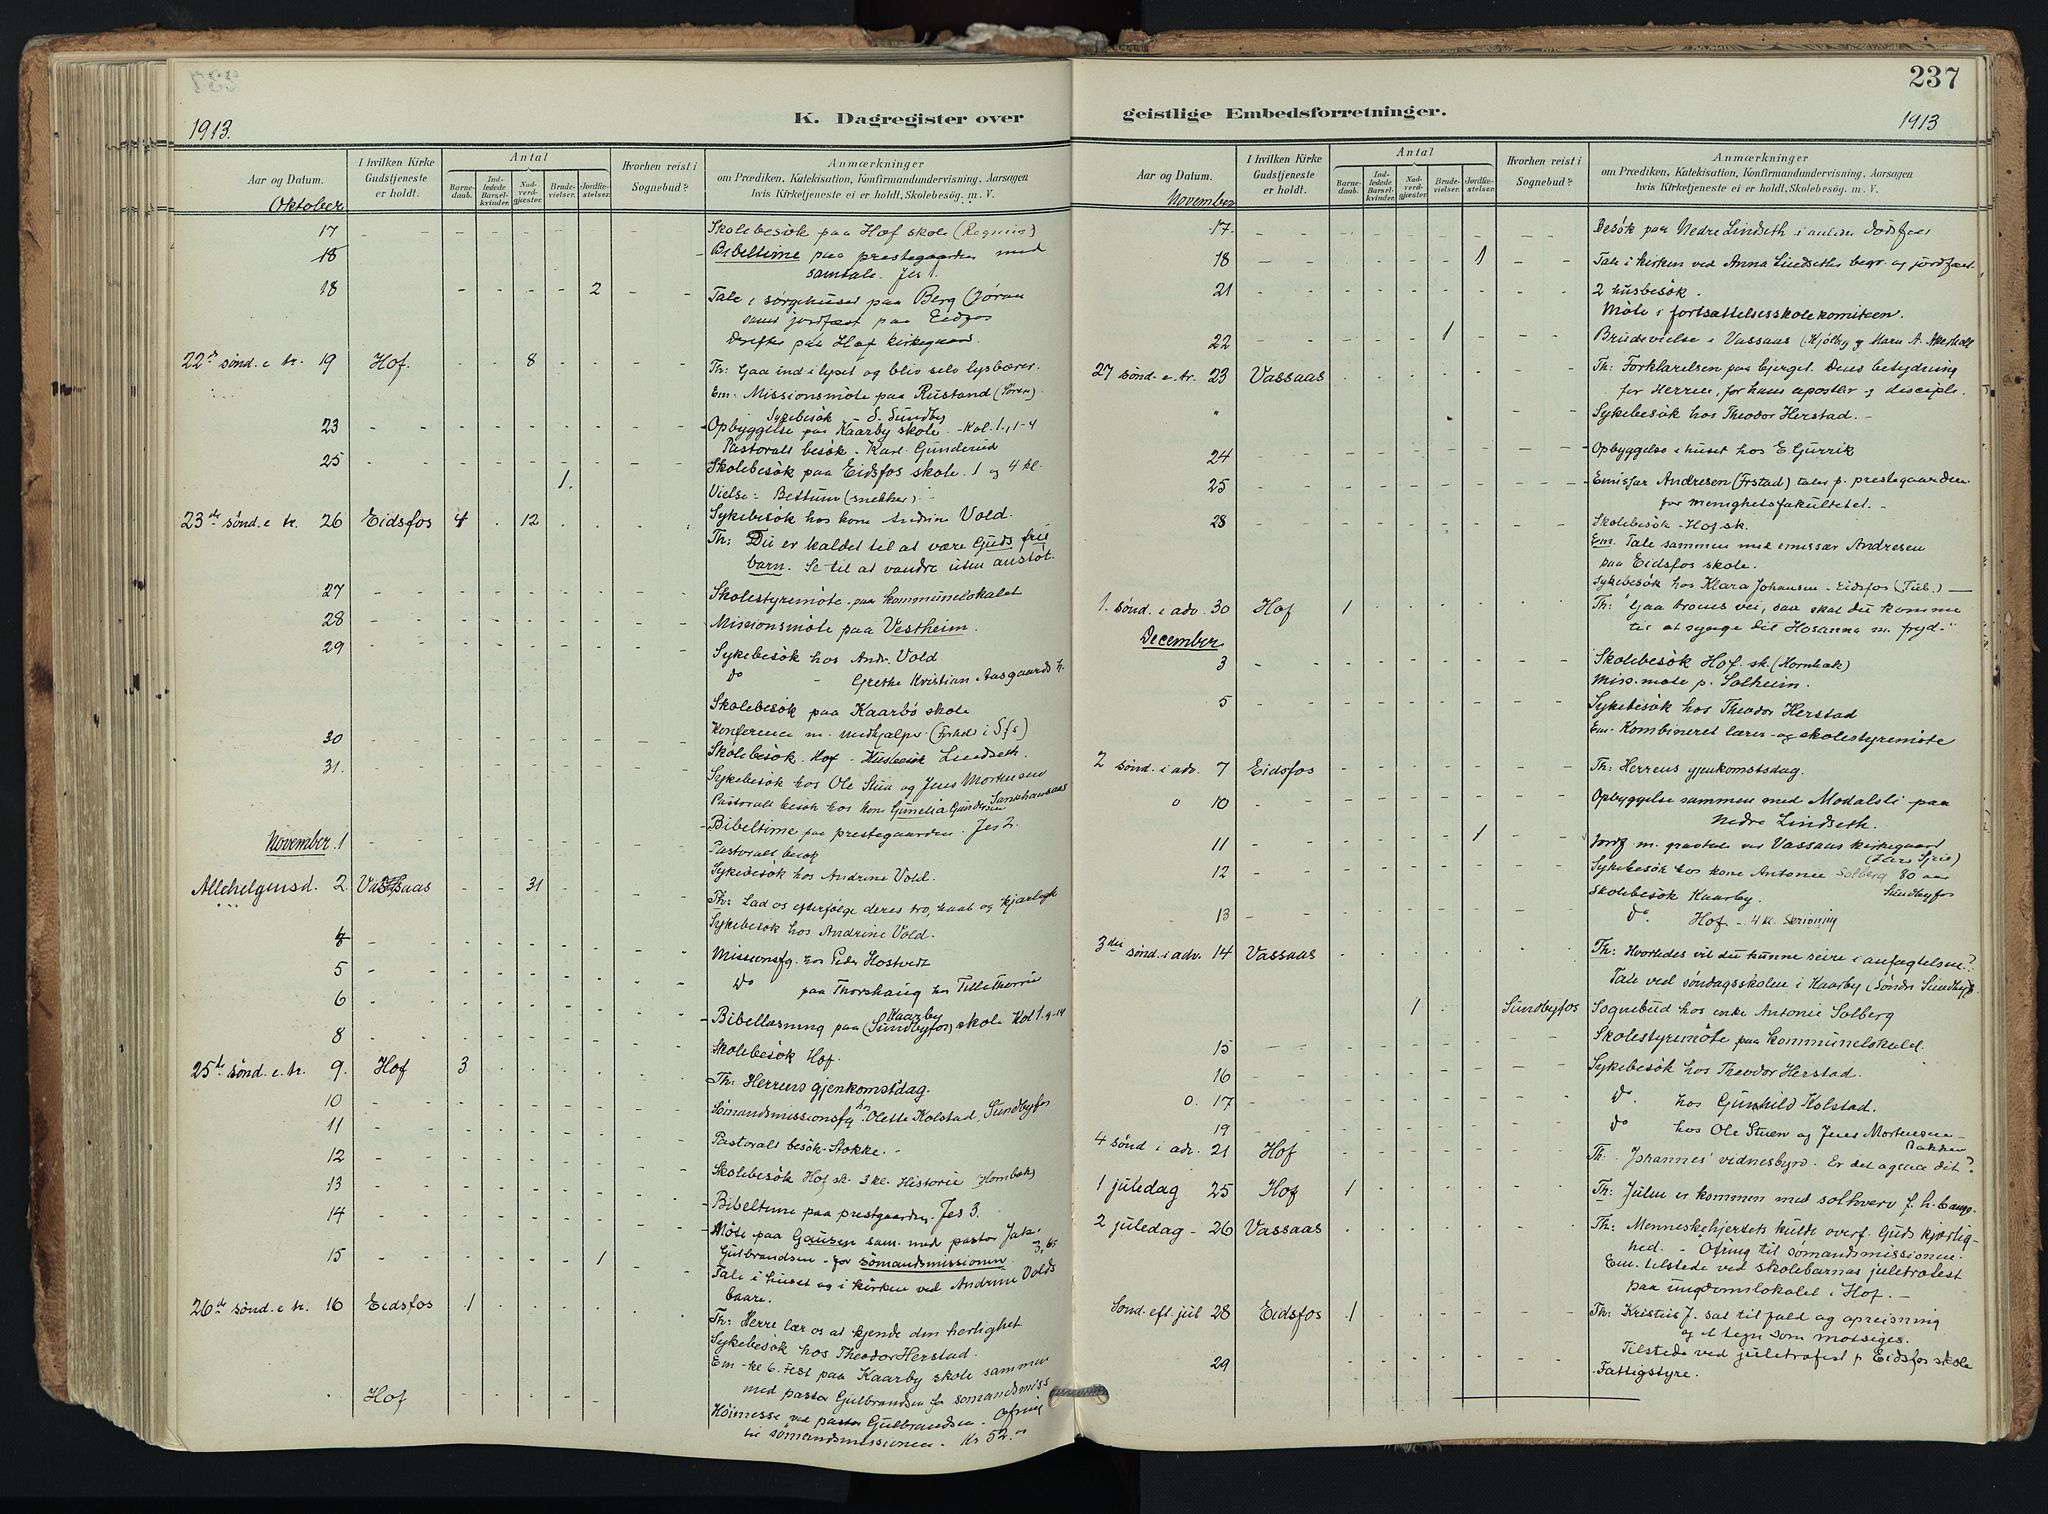 237
K. Dagregister over geistlige Embedsforretninger.
1913.
1913
Aar og Datum.
I hvilken Kirke Gudstjeneste er holdt.
Antal
Barnedaab.
Indledede Barselkvinder.
Nadverdgjæster.
Brudevielser.
Jordfæstelser.
Hvorhen reist i Sognebud?
Anmærkninger
om Prædiken, Katekisation, Konfirmandundervisning, Aarsagen
hvis Kirketjeneste ei er holdt, Skolebesøg. m. V.
Oktober
17 Skolebesök paa Hof skole
18 Bibeltime paa prestegaarden med
samtale. Jes 1.
18 2 Tale i sørgehuset paa Berg (Jöran
samt jordfæst paa Eidsfos
Derefter paa Hof kirkegaard
22de sønd. e tr. 19 Hof. 8 Th: Gaa ind i lyset og bliv selv lysbærer.
Em. Missionsmöte paa Rustand (Sören)
Sykebesök S. Sundby
23 Opbyggelse paa Kaarby skole. Kol. 1, 1-4
Pastoralt besök - Karl Gunderud
25 Skolebesök paa Eidsfos skole. 1 og 4 kl.
1. Vielse: Bettum (snekker)
23de sønd. e tr. 26 Eidsfos 4 12 Sykebesök hos kone Andrine Vold.
Th: Du er kaldet til at være Guds frie
barn. Se til at vandre uten anstöt.
27 Skolestyremöte paa kommunelokalet
28 Missionsmöte paa Vestheim.
29 Sykebesök hos Andr. Vold
Do Grethe Kristian Aasgaards h.
Skolebesök paa Kaarbö skole
30 Konference m. medhjælper
31. Skolebesök. Hof - Husbesök Lindseth.
Sykebesök hos Ole Stua og Jens Mortensen
Pastoralt besök hos kone Gunelia Gundersen
November 1 Bibeltime paa prestegaarden. Jes 2.
Pastoralt besök
Allehelgensd. 2 Vassaas 31 Sykebesök hos Andrine Vold.
Th: Lad os efterfölge deres tro, haab og kjærlighet
4 Sykebesök hos Andrine Vold.
5 Missionsfg. hos Peder Hostvedt
6 Do paa Thorshaug hos
8 Bibellæsning paa (Sundbyfos) Kaarby skole Kol 1. 9-14
Skolebesök Hof.
25de sønd. e. tr. 9. Hof 3 Th: Herrens gjenkomstdag.
10 Sømandsmissionsfg hos Olette Kolstad, Sundbyfos
11 Pastoralt besök Stokke.
12 Skolebesök Hof sk. 3 kl. Historie (Hornbæk)
13 Bibeltime paa prestgaarden. Jes 3.
14 Möte paa Gausen sam. med pastor Jak.
15 1 Gulbrandsen - for sømandsmissionen. 3,65
Tale i huset og i kirken ved Andrine Volds
baare.
26de sønd. e tr. 16 Eidsfos 1 Th: Herre lær os at kjende din herlighet
Sykebesök hos Theodor Herstad.
Em - kl 6. Fest paa Kaarby skole sammen
med pastor Gulbrandsen for sømandsmiss
Hof Höimesse ved pastor Gulbrandsen. Ofring
til sømandsmissionen. Kr 52.00
Aar og Datum.
I hvilken Kirke Gudstjeneste er holdt.
Antal
Barnedaab.
Indledede Barselkvinder.
Nadverdgjæster.
Brudevielser.
Jordfæstelser.
Hvorhen reist i Sognebud?
Anmærkninger
om Prædiken, Katekisation, Konfirmandundervisning, Aarsagen
hvis Kirketjeneste ei er holdt, Skolebesøg. m. V.
November
17. Besök paa Nedre Lindseth i anledn. dødsfær
18 1 Tale i kirken ved Anna Lindseths begr. og jordfæst.
21 2 husbesök.
Möte i fortsættelsesskolekomiteen.
22 1 Brudevielse i Vassaas
27 sønd. e. tr. 23 Vassaas Th: Forklarelsen paa bjerget. Dens betydning
for Herren, for hans apostler og disciple.
" Sykebesök hos Theodor Herstad.
24 Opbyggelse i huset hos E. Gurrik
25 Emissær Andresen (Irstad) taler p. prestegaarden
for menighetsfakultetet.
28 Skolebesök - Hof sk.
Em. Tale sammen med emissær Andresen
paa Eidsfos skole.
Sykebesök hos Klara Johansen - Eidsfos (Tub.)
1. sønd. i adv. 30 Hof 1 Th: "Gaa troens vei, saa skal du komme
til at synge dit Hosanna m. fryd."
December
3 Skolebesök Hof sk. (Hornbæk)
Miss. möte p. Solheim.
5 Sykebesök hos Theodor Herstad
Em. Kombineret lærer- og skolestyremöte
2 sønd. i adv. 7 Eidsfos Th: Herrens gjenkomstsdag.
o 10 Opbyggelse sammen med Modalsli paa
Nedre Lindseth.
11 1 Jordf. m. gravtale ved Vassaas kirkegaard
12 Sykebesök hos kone Antonie Solberg 80 aar
Sundbyfos
Skolebesök Kaarby.
13 Do. Hof - 4 kl. Skrivning
3die sønd. i adv. 14 Vassaas Th: Hvorledes vil du kunne seire i anfegtelsen?
Tale ved søndagsskolen i Kaarby (Søndre Sundby).
1 Sundbyfos Sognebud hos enke Antonie Solberg
15 Skolestyremöte paa kommunelokalet.
16 Sykebesök hos Theodor Herstad.
o. 17 Do. hos Gunhild Kolstad.
19 Do hos Ole Stuen og Jens Mortensen
Bakken
4 sønd i adv. 21 Hof Th: Johannes' vidnesbyrd. Er det ogsaa dit?
1 juledag 25 Hof 1 Th: Julen er kommen med solhverv f. h. bange.
2 juledag - 26 Vassaas Th: Menneskehjertets kulde overf. Guds kjærlig-
hed. - Ofring til sømandsmissionen.
Em. tilstede ved skolebarnas juletræfest
paa ungdomslokalet i Hof.
Sønd. eft. jul 28 Eidsfos 1 Th: Kristus J. sat til fald og opreisning
og et tegn som motsiges.
Tilstede ved juletræfest p Eidsfos skole
29 Fattigstyre.